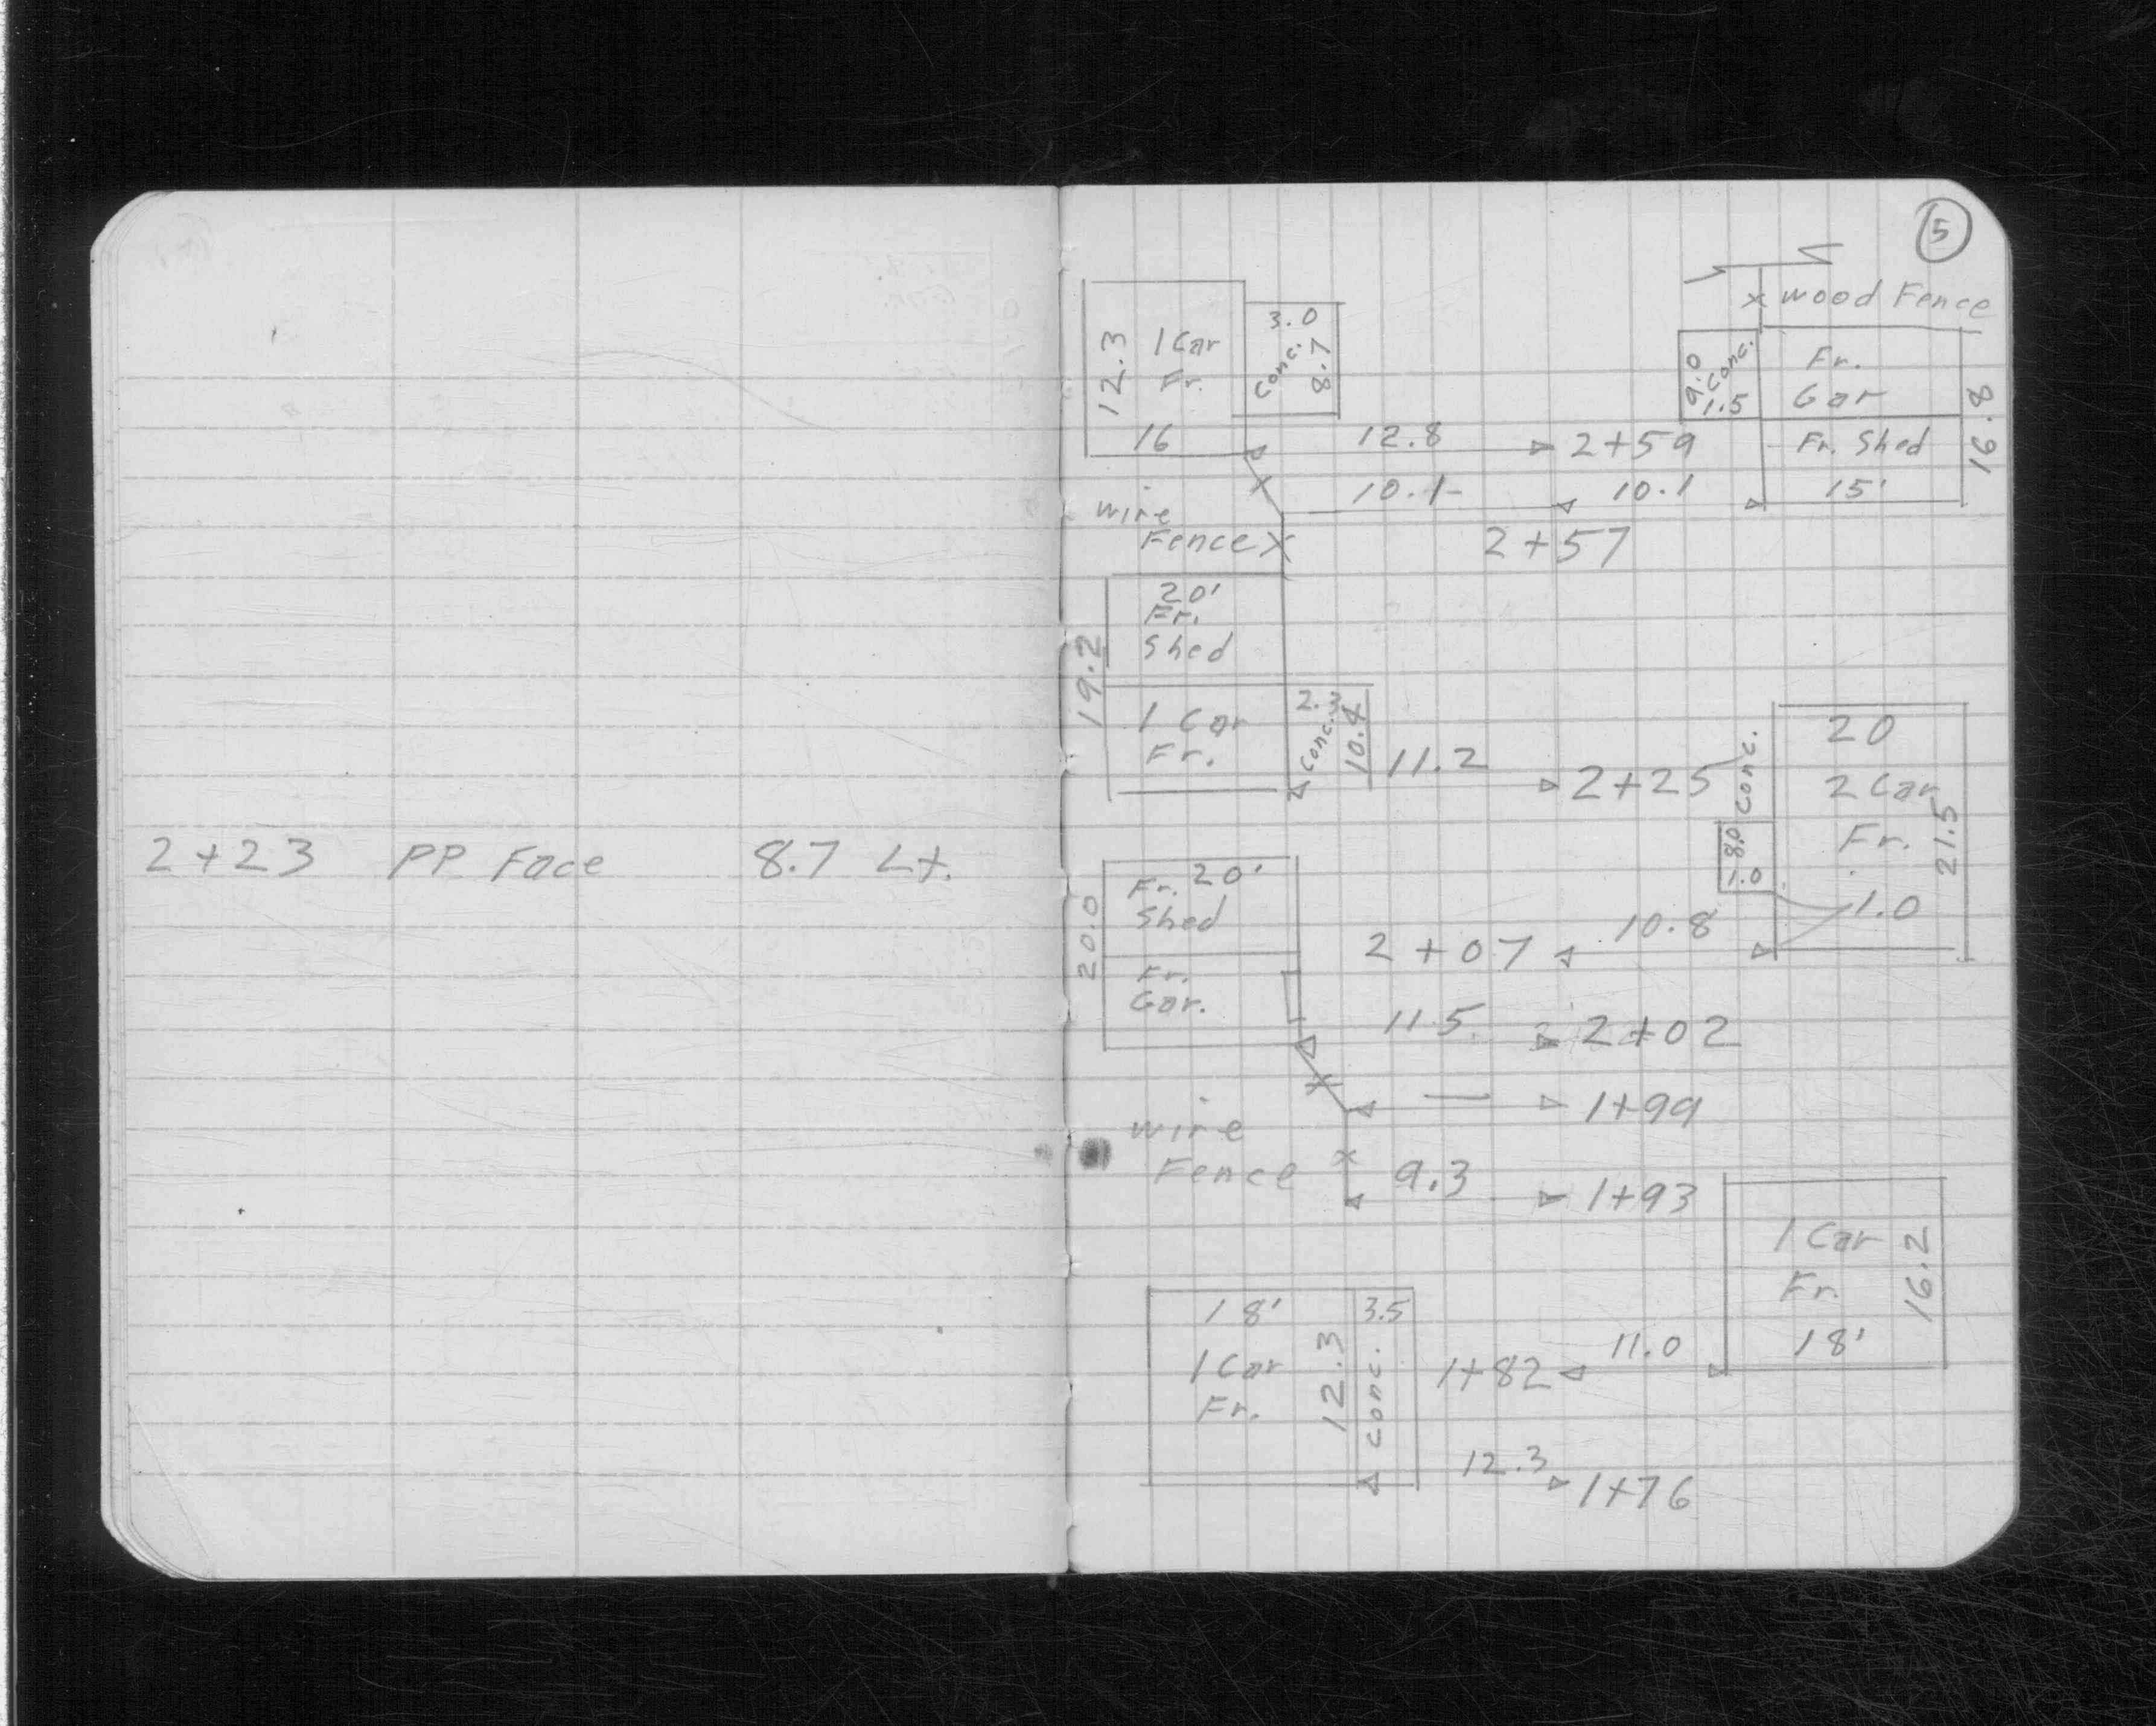 2+23 PP. Face 8.7 Lt.
5
x wood Fence
12.3
1 Car
Fr.
16
3.0
Conc.
8.7
9.0
Conc.
1.5
Fr.
Gar
16.8
12.8
2+59
Fr. Shed
15'
wire
Fence X
10.1
10.1
2+57
20'
Fr.
Shed
19.2
1 Car
Fr.
2.3
Conc.
10.4
11.2
2+25
Conc.
8.0
1.0
20
2 Car
Fr.
21.5
1.0
Fr. 20'
Shed
20.0
Fr.
Gar.
2+07
10.8
11.5
2+02
1+99
wire
Fence x
9.3
1+93
1 Car
Fr.
18'
16.2
18'
1 Car
Fr.
12.3
3.5
Conc.
1+82
11.0
12.3
1+76